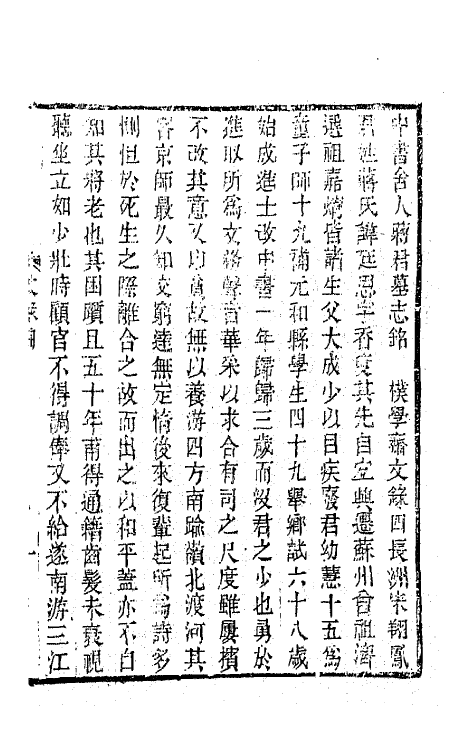 中書舍人蔣君墓志銘　樸學齋文錄四長洲宋翔鳳
君姓蔣氏諱廷恩字香度其先自宜興遷蘇州曾祖濟
選祖嘉熵皆諸生父大成少以目疾廢君幼慧十五爲
童子師十九補元和縣學生四十九舉鄉試六十八歲
始成進士改中書一年歸歸三歲而沒君之少也勇於
進取所爲文務聲音華采以求合有司之尺度雖屢擯
不改其意又以貧故無以養游四方南踰嶺北渡河其
客京師最久知交窮達無定情後來復輩起所爲詩多
惻怛於死生之際離合之故而出之以和平蓋亦不自
知其將老也其困躓且五十年甫得通籍齒髮未衰視
聽坐立如少壯時顧官不得調俸又不給遂南游三江
文